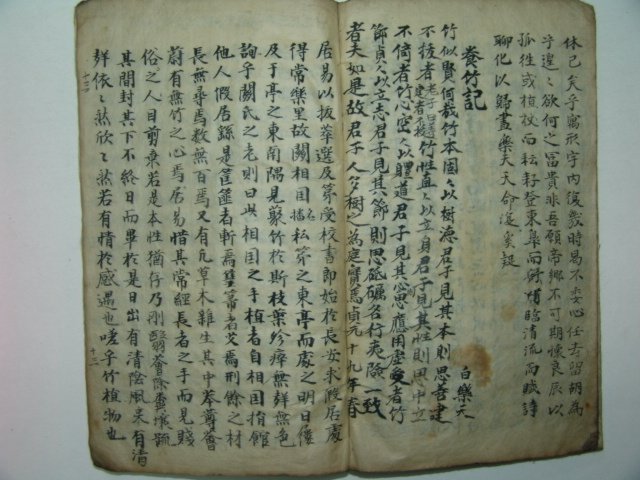 休已矣乎寓形宇內復幾時曷不委心任去留胡爲
乎遑〻欲何之富貴非吾願帝鄕不可期懷良辰以
孤往或植杖而耘耔登東皐而舒嘯臨淸流而賦詩
聊化以歸盡樂夫天命復奚疑
養竹記
白樂天
竹似賢何哉竹本固〻以樹德君子見其本則思善建
不拔者 老子曰善建者不拔 竹性直〻以立身君子見其性則思中立
不倚者竹心空〻以體道君子見其心思應用虛受者竹
節貞〻以立志君子見其節則思砥礪名行夷險一致
者夫如是故君子人多樹之爲庭實焉貞元十九年春
居易以拔萃選及第受校書郎始於長安求假居處
得常樂里故關相国私第之東亭而處之明日屨
及于亭之東南隅見叢竹於斯枝葉殄瘁無聲無色
詢乎關氏之老則曰此相国之手植者自相国捐館
他人假居繇是筐篚者斬焉篲箒者刈焉刑餘之材
長無尋焉數無百焉又有凡草木雜生其中菶䔿薈
蔚有無竹之心焉居易惜其常經長者之手而見賤
俗之人目剪棄若是本性猶存乃刪翳薈除糞壤䟽
其間封其下不終日而畢於是日出有淸陰風來有淸
聲依〻然欣〻然若有情於感遇也嗟乎竹植物也